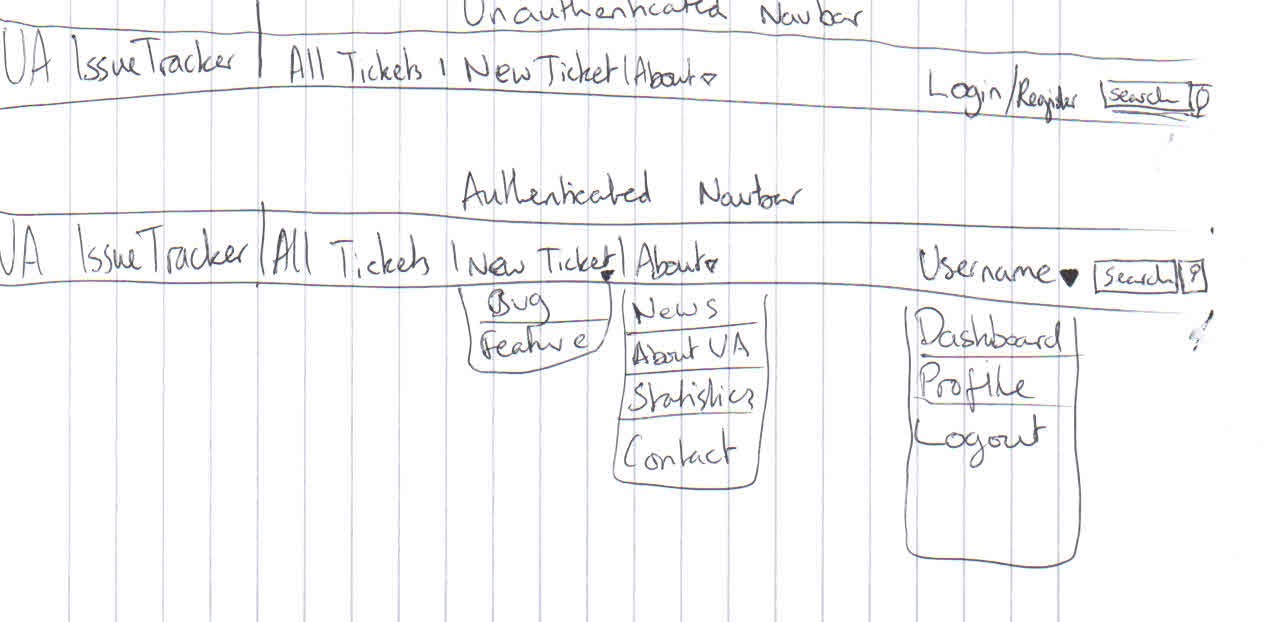 Unauthenticated Navbar
UA IssueTracker | All Tickets | New Ticket | About
Login/Register search
Authenticated Navbar
UA IssueTracker | All Tickets | New Ticket | About
Username search
Bug
Feature
News
About UA
Statistics
Contact
Dashboard
Profile
Logout